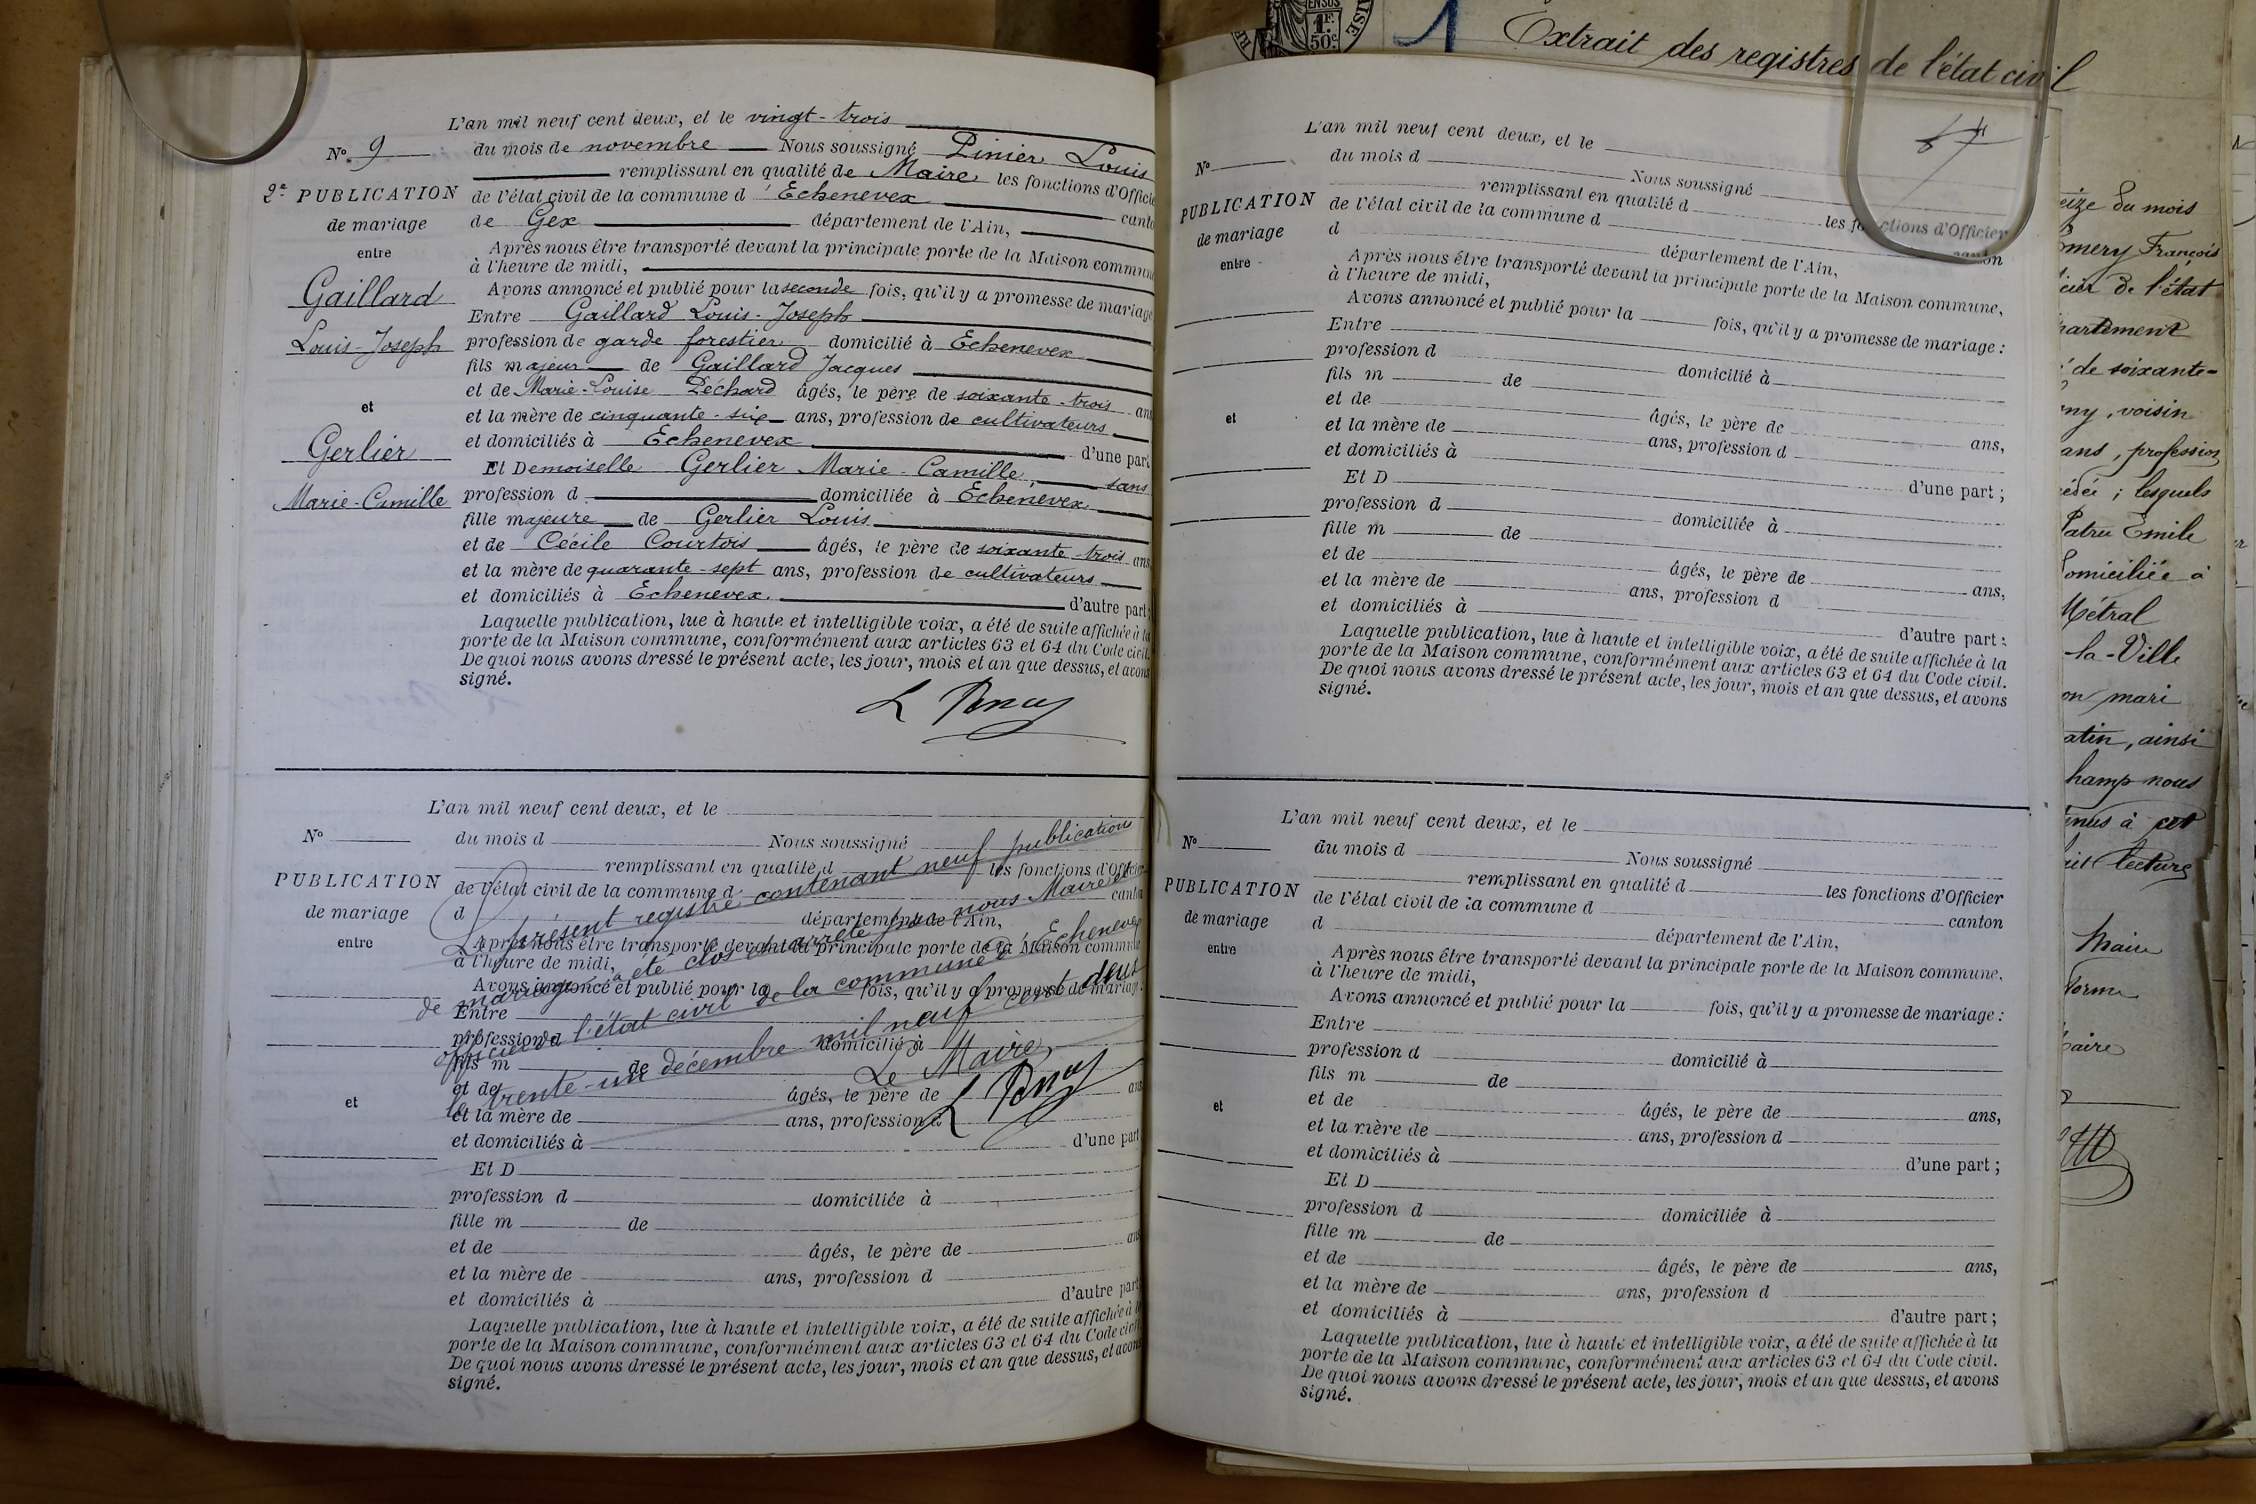 L'an mil neuf cent deux, et le vingt-trois
No. 9 du mois de novembre Nous soussigné Pinier Louis
remplissant en qualité de Maire les fonctions d'Officie
2e PUBLICATION de l'état civil de la commune d'Echenevex cant
de mariage de Gex département de l'Ain,
entre Après nous être transporté devant la principale porte de la Maison commun
à l'heure de midi,
Gaillard Avons annoncé et publié pour la seconde fois, qu'il y a promesse de mariage
Entre Gaillard Louis-Joseph
Louis-Joseph profession de garde forestier domicilié à Echenevex
fils majeur de Gaillard Jacques
et de Marie-Louise Péchard âgés, le père de soixante-trois ans
et et la mère de cinquante-six ans, profession de cultivateurs
et domiciliés à Echenevex d'une part
Gerlier Et Demoiselle Gerlier Marie-Camille, sans
Marie-Camille profession d domiciliée à Echenevex
fille majeure de Gerlier Louis
et de Cécile Courtois âgés, le père de soixante-trois ans
et la mère de quarante-sept ans, profession de cultivateurs
et domiciliés à Echenevex. d'autre part;
Laquelle publication, lue à haute et intelligible voix, a été de suite affichée à la
porte de la Maison commune, conformément aux articles 63 et 64 du Code civil.
De quoi nous avons dressé le présent acte, les jour, mois et an que dessus, et avons
signé.
L'an mil neuf cent deux, et le
No du mois d Nous soussigné
remplissant en qualité d les fonctions d'Officier
PUBLICATION de l'état civil de la commune d canto
de mariage d département de l'Ain,
entre Après nous être transporté devant la principale porte de la Maison commune
à l'heure de midi,
Avons annoncé et publié pour la fois, qu'il y a promesse de mariage
Entre
profession d domicilié à
fils m de
et de âgés, le père de ans
et et la mère de ans, profession d
et domiciliés à d'une part
Et D
profession d domiciliée à
fille m de
et de âgés, le père de ans
et la mère de ans, profession d
et domiciliés à d'autre part
Laquelle publication, lue à haute et intelligible voix, a été de suite affichée à la
porte de la Maison commune, conformément aux articles 63 et 64 du Code civil
De quoi nous avons dressé le présent acte, les jour, mois et an que dessus, et avons
signé.
Le présent registre contenant neuf publications
de mariage a été clos et arrêté par nous Maire et
officier de l'état civil de la commune d'Echenevex
le trente-un décembre mil neuf cent deux
Le Maire,
1 Extrait des registres de l'état civil
1F. 50c
L'an mil neuf cent deux, et le
No du mois d Nous soussigné
remplissant en qualité d les fonctions d'Officier
PUBLICATION de l'état civil de la commune d canton
de mariage d département de l'Ain,
entre Après nous être transporté devant la principale porte de la Maison commune,
à l'heure de midi,
Avons annoncé et publié pour la fois, qu'il y a promesse de mariage :
Entre
profession d domicilié à
fils m de
et de âgés, le père de ans,
et et la mère de ans, profession d
et domiciliés à d'une part ;
Et D
profession d domiciliée à
fille m de
et de âgés, le père de ans,
et la mère de ans, profession d
et domiciliés à d'autre part :
Laquelle publication, lue à haute et intelligible voix, a été de suite affichée à la
porte de la Maison commune, conformément aux articles 63 et 64 du Code civil.
De quoi nous avons dressé le présent acte, les jour, mois et an que dessus, et avons
signé.
L'an mil neuf cent deux, et le
No du mois d Nous soussigné
remplissant en qualité d les fonctions d'Officier
PUBLICATION de l'état civil de la commune d canton
de mariage d département de l'Ain,
entre Après nous être transporté devant la principale porte de la Maison commune,
à l'heure de midi,
Avons annoncé et publié pour la fois, qu'il y a promesse de mariage :
Entre
profession d domicilié à
fils m de
et de âgés, le père de ans,
et et la mère de ans, profession d
et domiciliés à d'une part ;
Et D
profession d domiciliée à
fille m de
et de âgés, le père de ans,
et la mère de ans, profession d
et domiciliés à d'autre part ;
Laquelle publication, lue à haute et intelligible voix, a été de suite affichée à la
porte de la Maison commune, conformément aux articles 63 et 64 du Code civil.
De quoi nous avons dressé le présent acte, les jour, mois et an que dessus, et avons
signé.
eize du mois
omery François
cier de l'état
partement
de soixante-
ny, voisin
ans, profession
édée ; lesquels
Patru Emile
domiciliée à
Métral
la-Ville
on mari
atin, ainsi
hamp nous
enus à cet
ait lecture
Maire
Maire